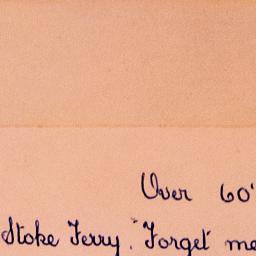 Over 60'
Stoke Ferry. "Forget me